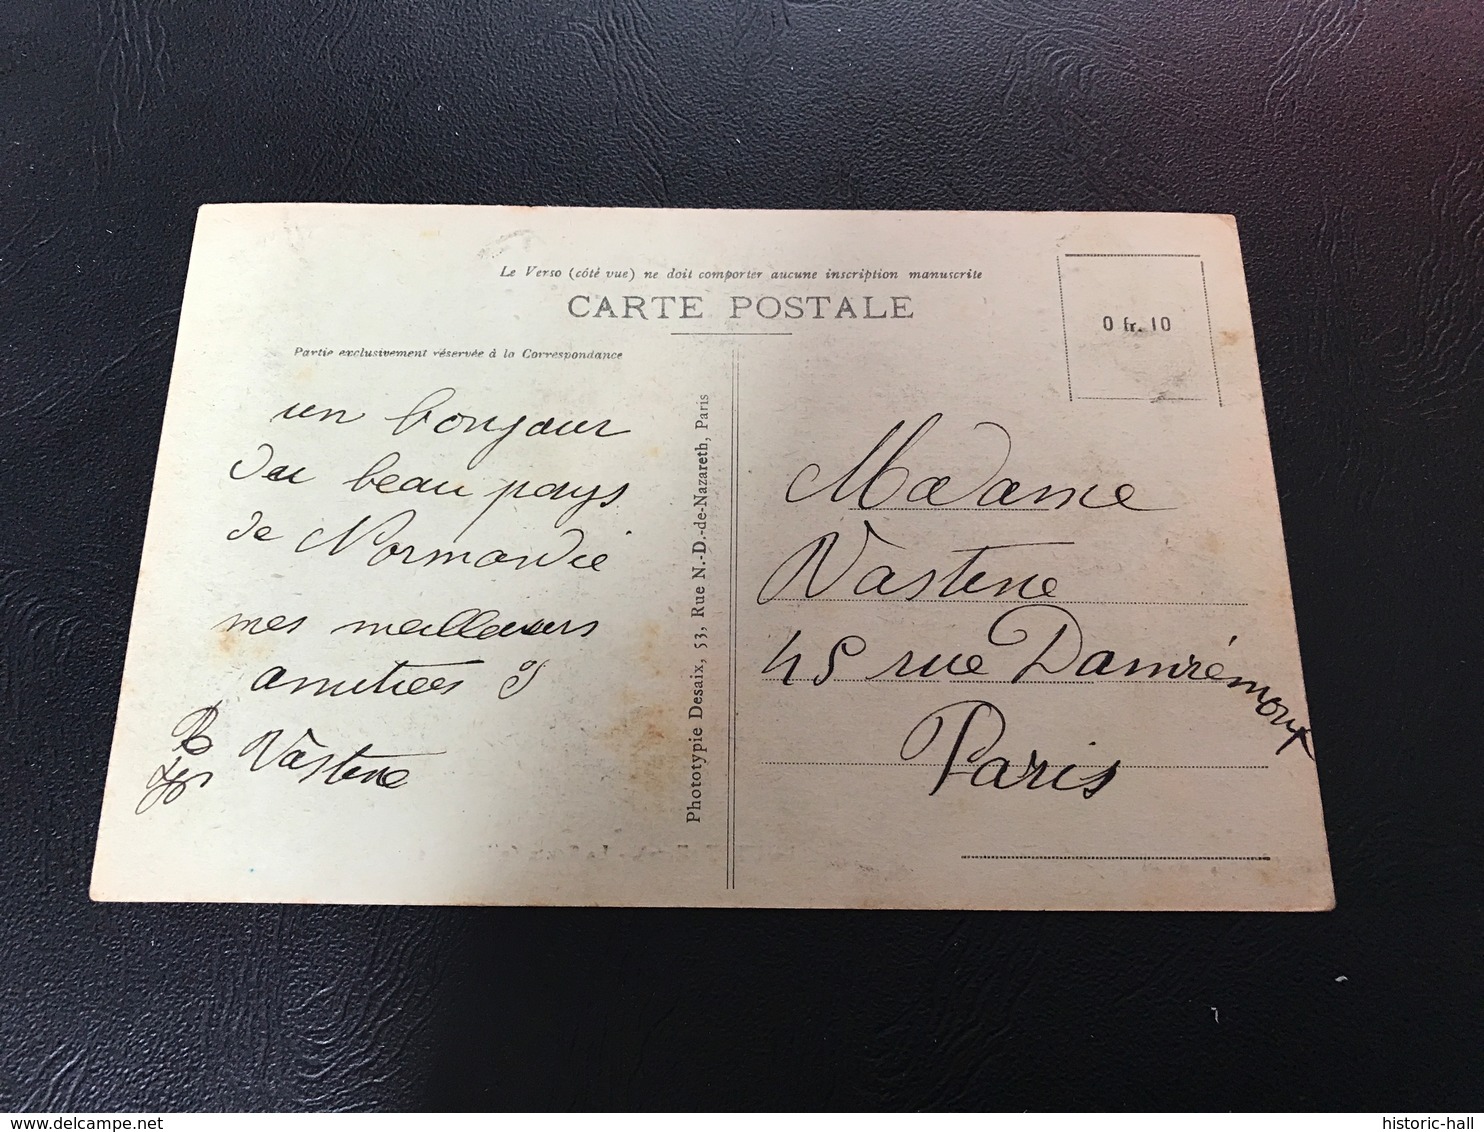 Le Verso (côté vue) ne doit comporter aucune inscription manuscrite
CARTE POSTALE
0 fr. 10
Partie exclusivement réservée à la Correspondance
un bonjour
du beau pays
de Normandie
mes meilleurs
amitiées
Vastene
Phototypie Desaix, 53, Rue N.-D.-de-Nazareth, Paris
Madame
Vastene
45 rue Damrémont
Paris
delcampe.net
historic-hall